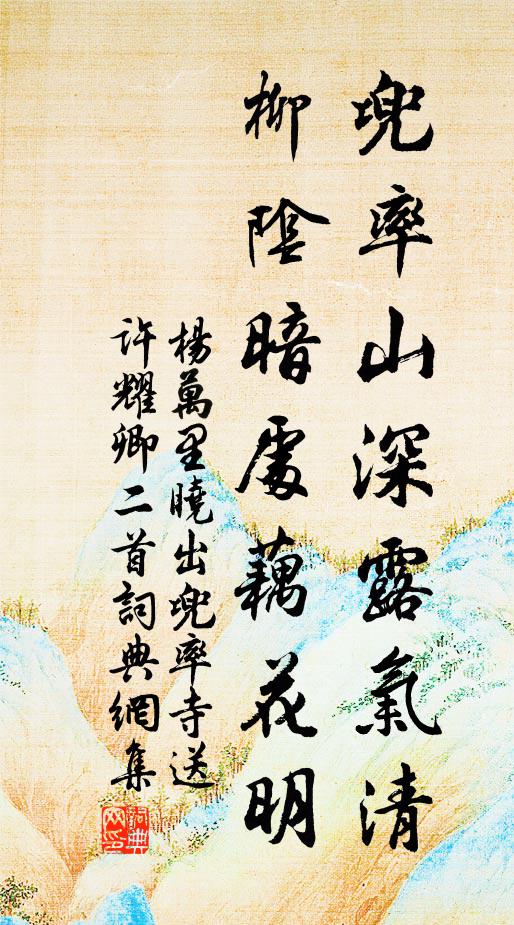 兜率山深露氣清
柳陰暗處藕花明
楊萬里曉出兜率寺送
許耀卿二首詞典網集
詞典
网印